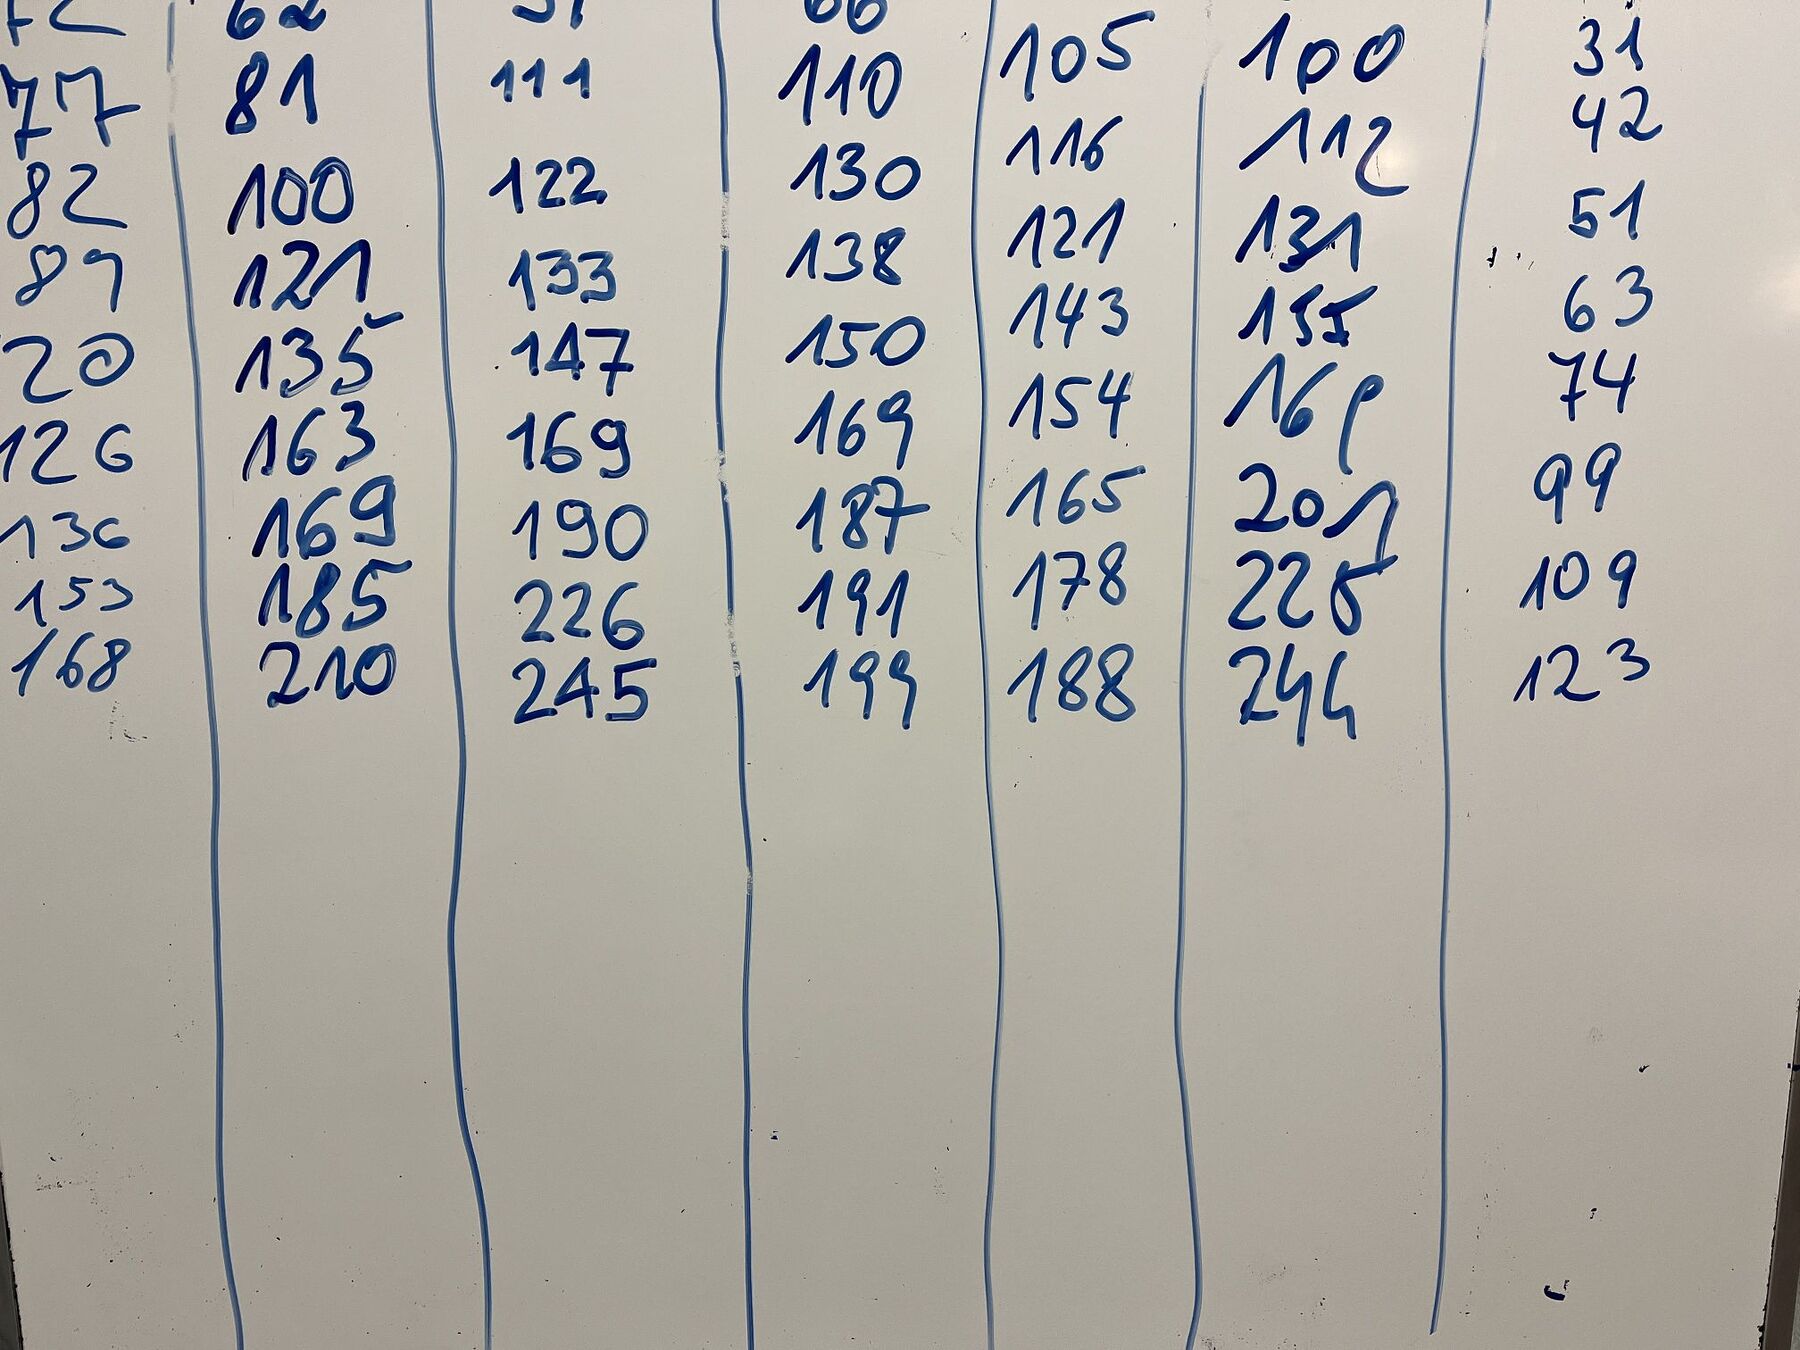 62 66
77 81 111 110 105 100 31
82 100 122 130 116 112 42
89 121 133 138 121 131 51
20 135 147 150 143 155 63
126 163 169 169 154 169 74
136 169 190 187 165 201 99
153 185 226 191 178 225 109
168 210 245 199 188 244 123